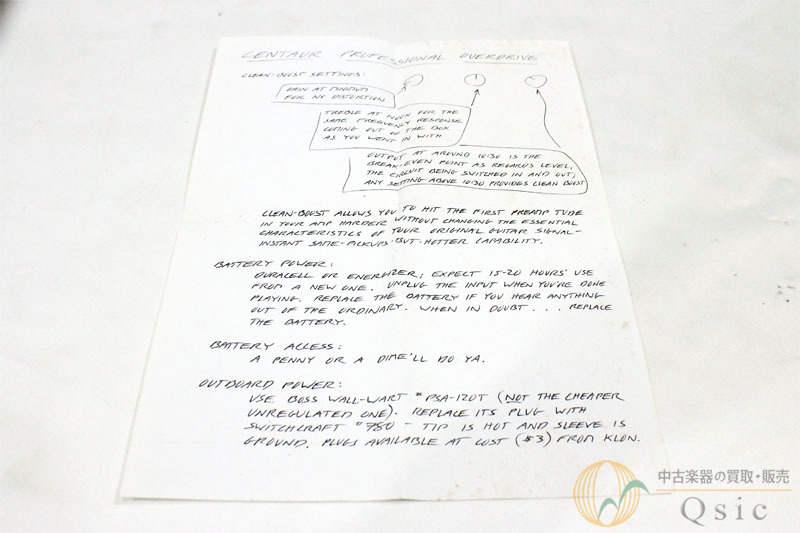 CENTAUR PROFESSIONAL OVERDRIVE
CLEAN-BOOST SETTINGS:
GAIN AT MINIMUM
FOR NO DISTORTION
TREBLE AT NOON FOR THE
SAME FREQUENCY RESPONSE
COMING OUT OF THE BOX
AS YOU WENT IN WITH
OUTPUT AT AROUND 10:30 IS THE
BREAK-EVEN POINT AS REGARDS LEVEL,
THE CIRCUIT BEING SWITCHED IN AND OUT;
ANY SETTING ABOVE 10:30 PROVIDES CLEAN BOOST
CLEAN-BOOST ALLOWS YOU TO HIT THE FIRST PREAMP TUBE
IN YOUR AMP HARDER WITHOUT CHANGING THE ESSENTIAL
CHARACTERISTICS OF YOUR ORIGINAL GUITAR SIGNAL-
INSTANT SAME-PICKUPS-BUT-HOTTER CAPABILITY.
BATTERY POWER:
DURACELL OR ENERGIZER; EXPECT 15-20 HOURS' USE
FROM A NEW ONE. UNPLUG THE INPUT WHEN YOU'RE DONE
PLAYING. REPLACE THE BATTERY IF YOU HEAR ANYTHING
OUT OF THE ORDINARY. WHEN IN DOUBT . . . REPLACE
THE BATTERY.
BATTERY ACCESS:
A PENNY OR A DIME'LL DO YA.
OUTBOARD POWER:
USE BOSS WALL-WART # PSA-120T (NOT THE CHEAPER
UNREGULATED ONE). REPLACE ITS PLUG WITH
SWITCHCRAFT #780 - TIP IS HOT AND SLEEVE IS
GROUND. PLUGS AVAILABLE AT COST ($3) FROM KLON.
中古楽器の買取・販売
Qsic